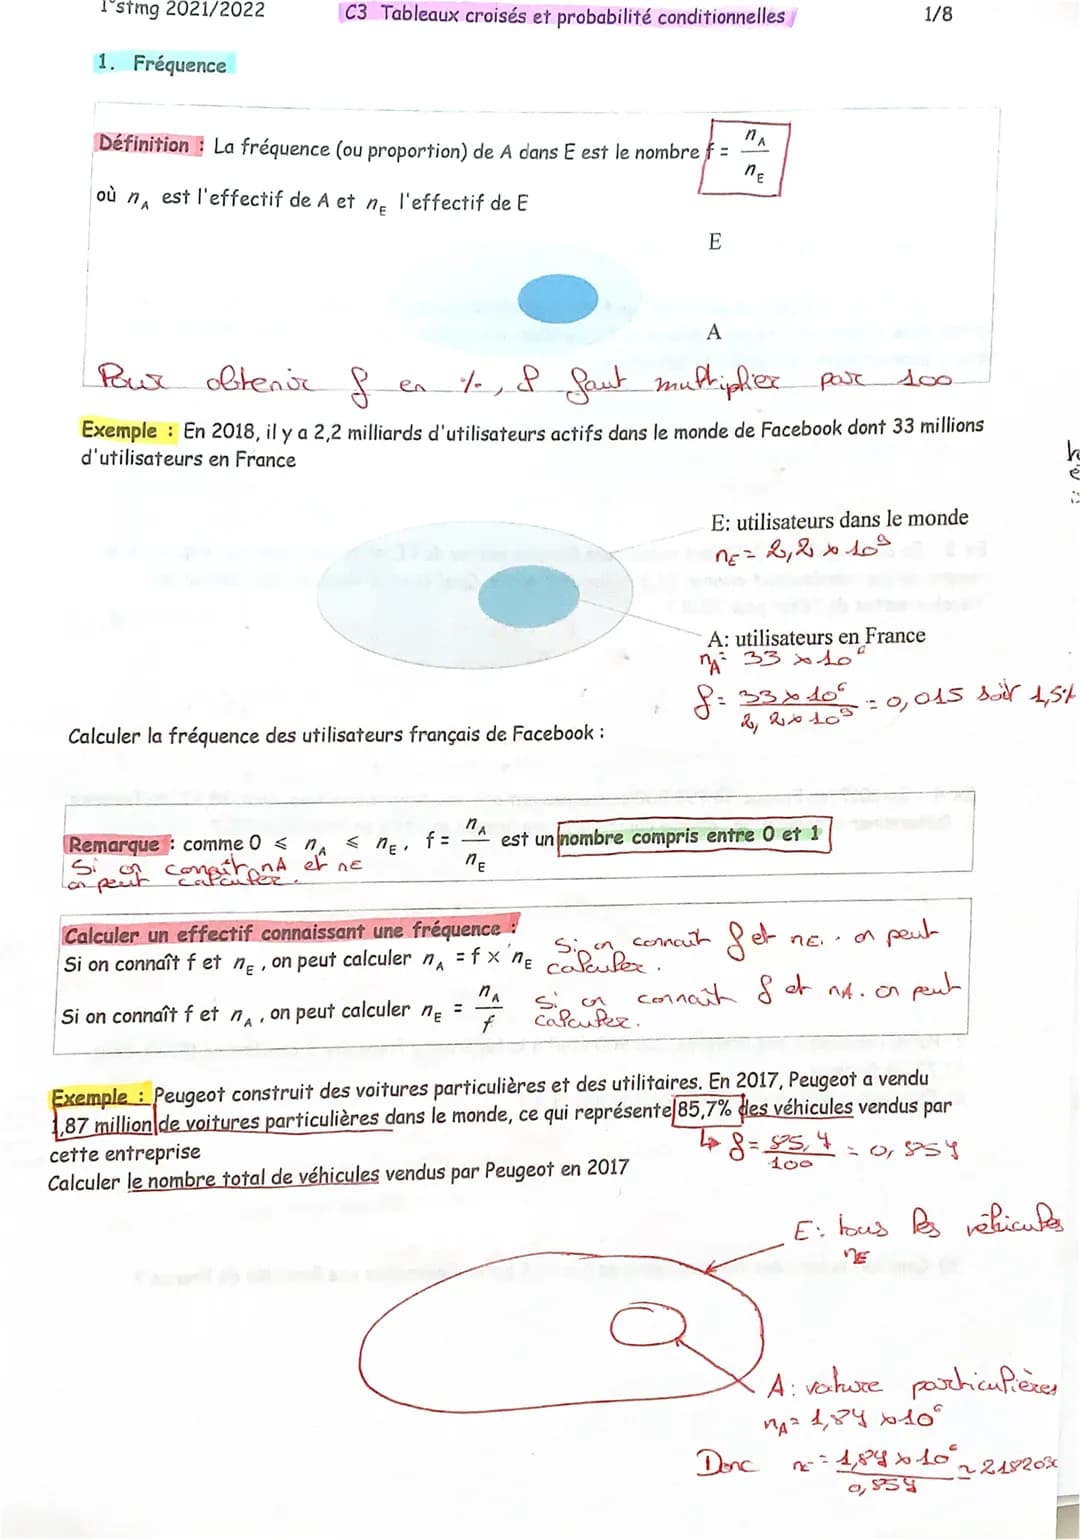 1°stmg 2021/2022
C3 Tableaux croisés et probabilité conditionnelles
1/8
1. Fréquence
Définition : La fréquence (ou proportion) de A dans E est le nombre f = n_A / n_E
où n_A est l'effectif de A et n_E l'effectif de E
E
A
Pour obtenir f en %, il faut multiplier par 100
Exemple : En 2018, il y a 2,2 milliards d'utilisateurs actifs dans le monde de Facebook dont 33 millions
d'utilisateurs en France
E: utilisateurs dans le monde
n_E = 2,2 × 10^9
A: utilisateurs en France
n_A = 33 × 10^6
f = 33 × 10^6 / 2,2 × 10^9 = 0,015 soit 1,5%
Calculer la fréquence des utilisateurs français de Facebook :
Remarque : comme 0 ⩽ n_A ⩽ n_E, f = n_A / n_E est un nombre compris entre 0 et 1
Si on connaît nA et nE
on peut calculer.
Calculer un effectif connaissant une fréquence :
Si on connaît f et n_E, on peut calculer n_A = f × n_E
Si on connaît f et nE. on peut
calculer.
Si on connaît f et n_A, on peut calculer n_E = n_A / f
Si on connaît f et nA. on peut
calculer.
Exemple : Peugeot construit des voitures particulières et des utilitaires. En 2017, Peugeot a vendu
1,87 million de voitures particulières dans le monde, ce qui représente 85,7% des véhicules vendus par
cette entreprise
↳ f = 85,7 / 100 = 0,857
Calculer le nombre total de véhicules vendus par Peugeot en 2017
E: tous les véhicules
nE
A: voiture particulières
n_A = 1,87 × 10^6
Donc n_E = 1,87 × 10^6 / 0,857 ≈ 218203